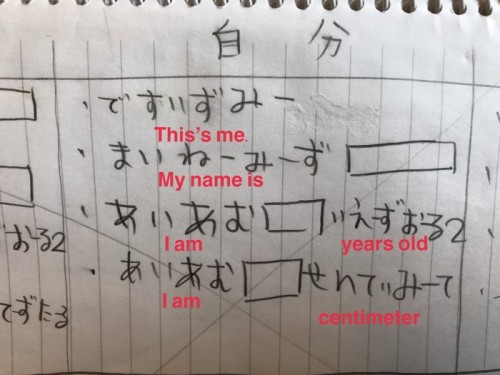 自 分
・ですいずみー
This's me.
・まいねーみーず
My name is
・あいあむ いえずおる2
I am years old
・あいあむ せんてぃみーて
I am
centimeter
おーる2
てずたる